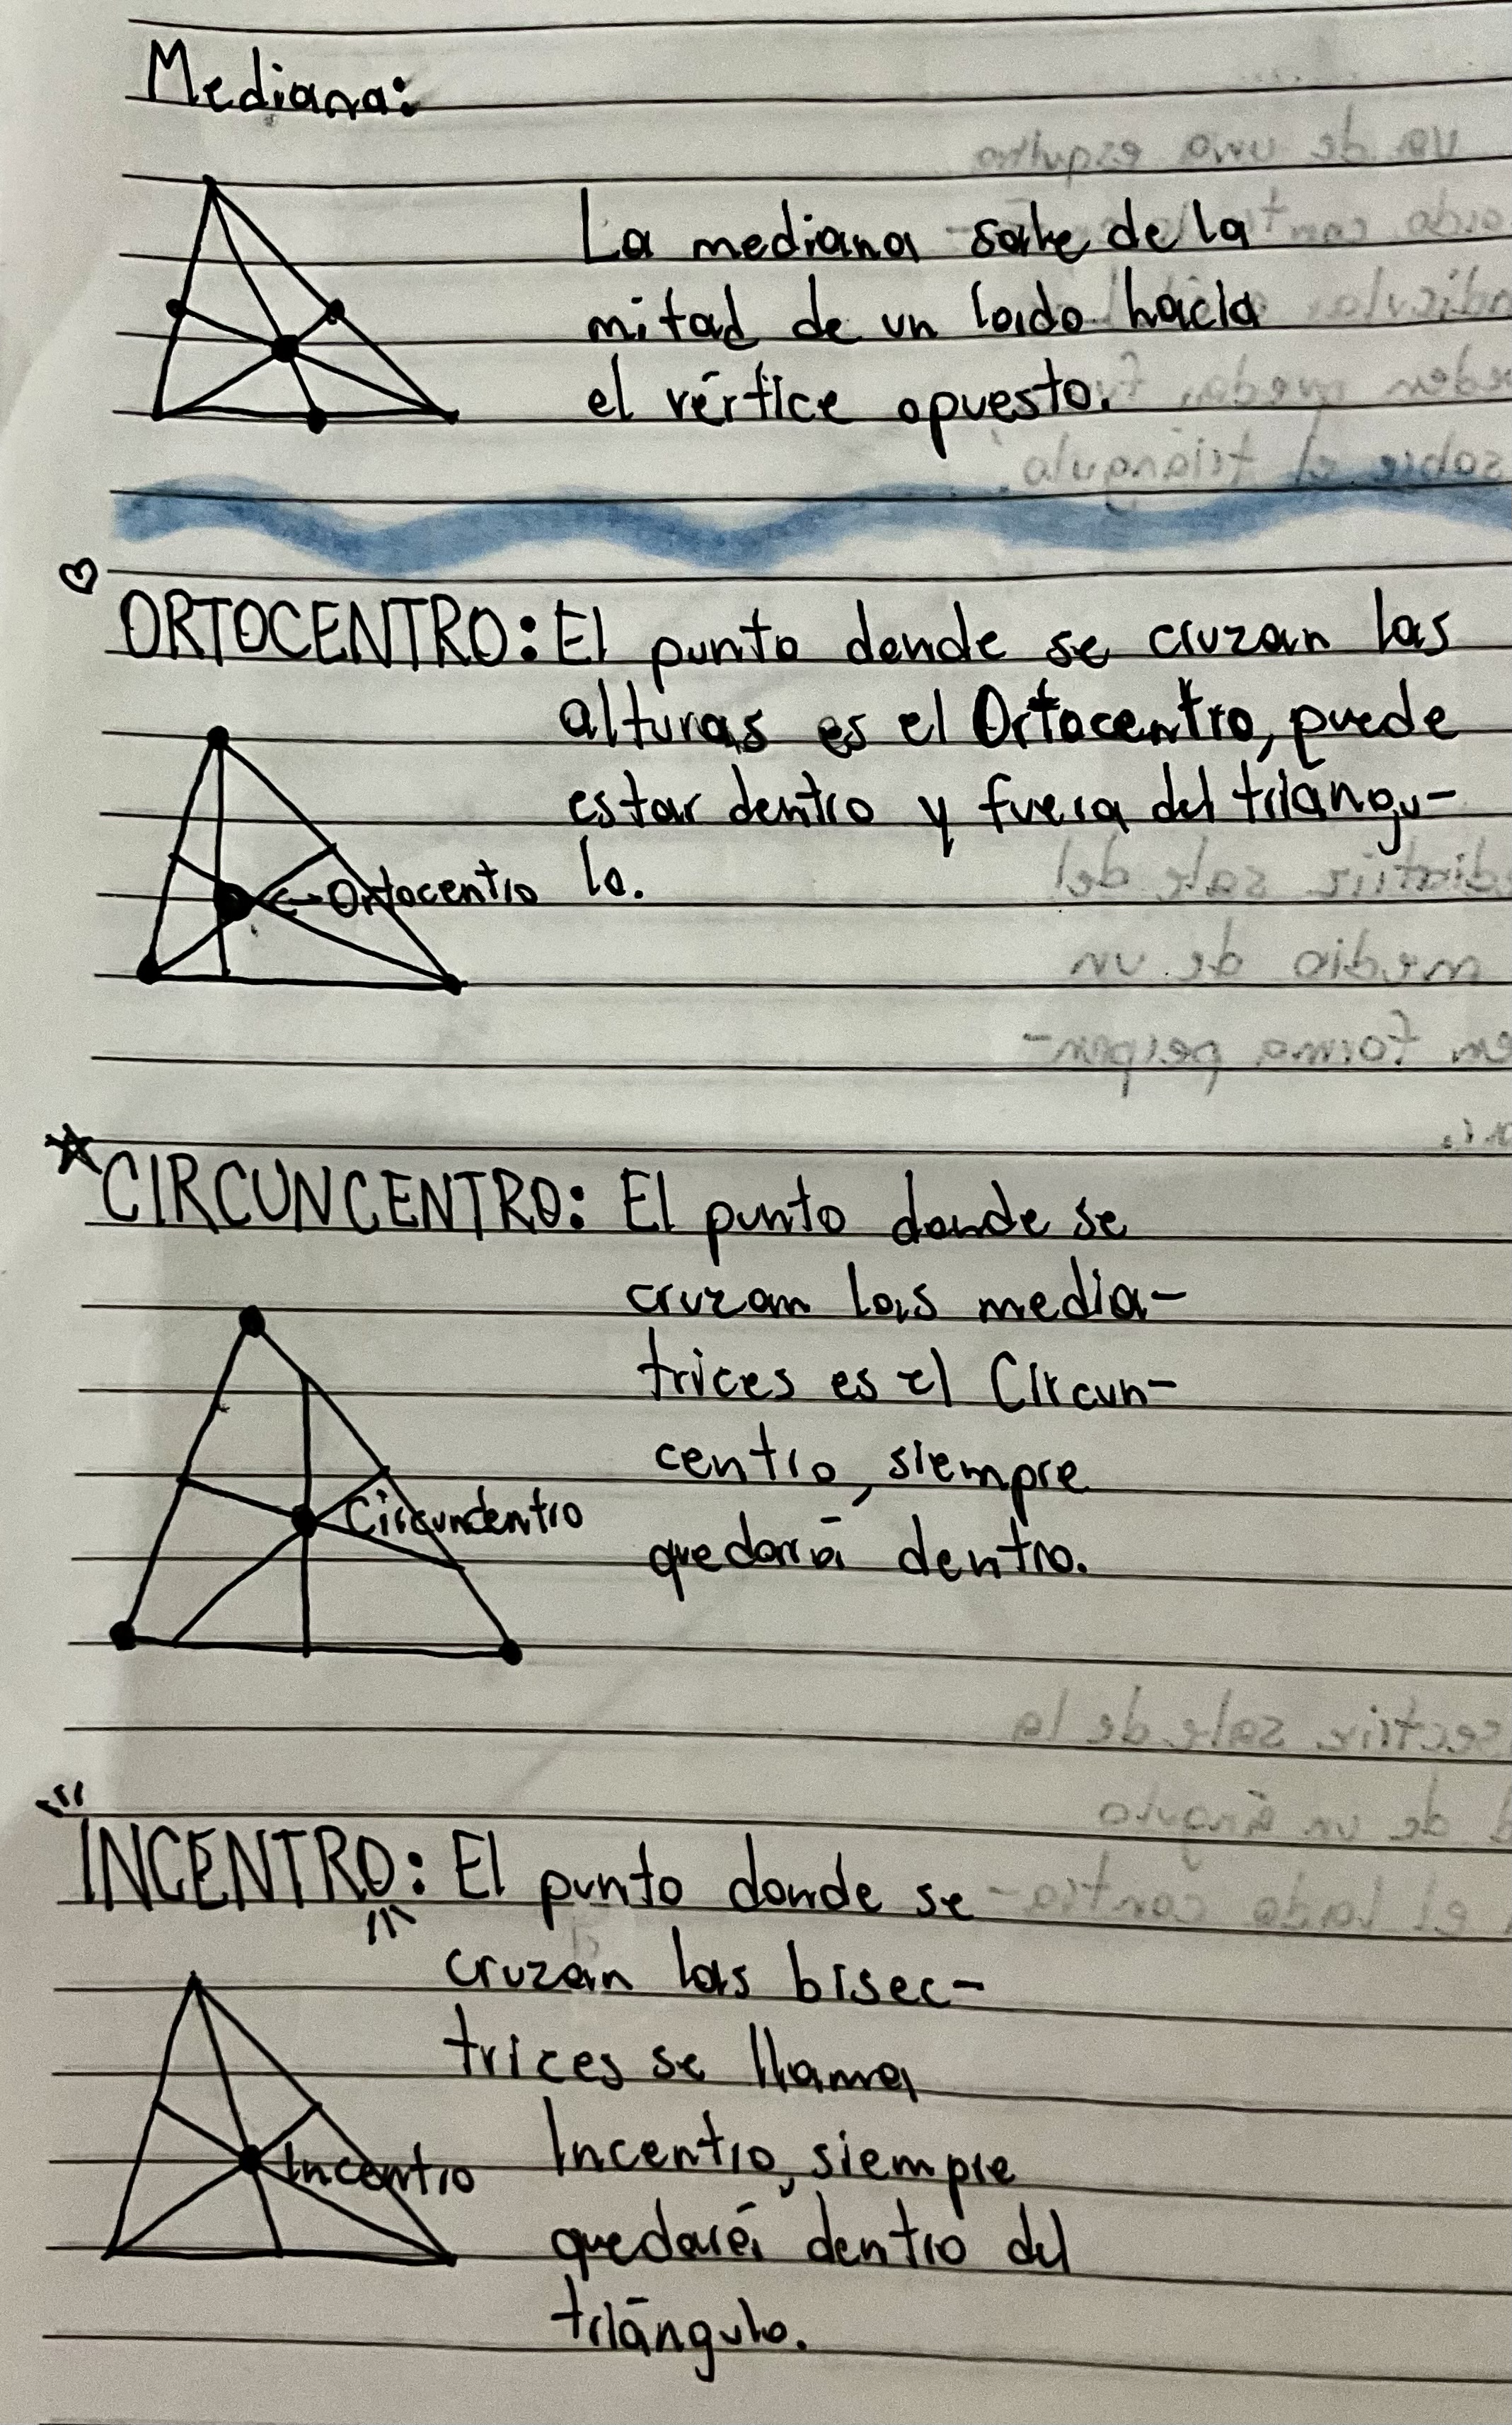 Mediana:
La mediana sale de la
mitad de un lado hacia
el vértice opuesto.
ORTOCENTRO: El punto donde se cruzan las
alturas es el Ortocentro, puede
estar dentro y fuera del triángu-
lo.
←Ortocentro
CIRCUNCENTRO: El punto donde se
cruzan las media-
trices es el Circun-
centro, siempre
quedará dentro.
Circuncentro
INCENTRO: El punto donde se
cruzan las bisec-
trices se llama
Incentro, siempre
quedará dentro del
triángulo.
Incentro